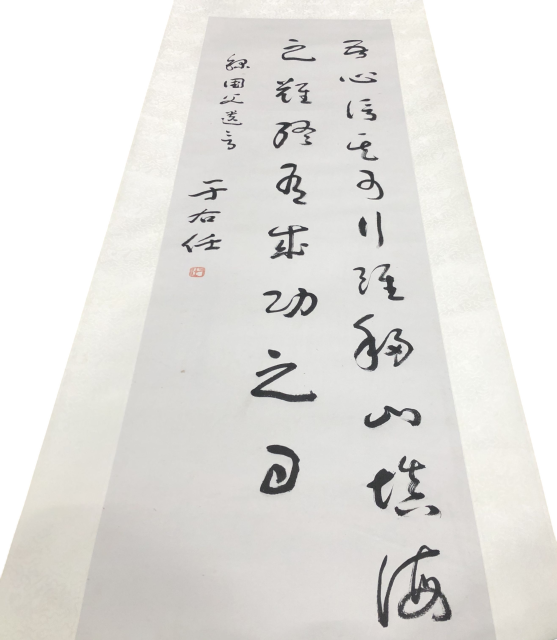 吾心信其可行雖移山填海
之難終有成功之日
錄國父遺言
于右任